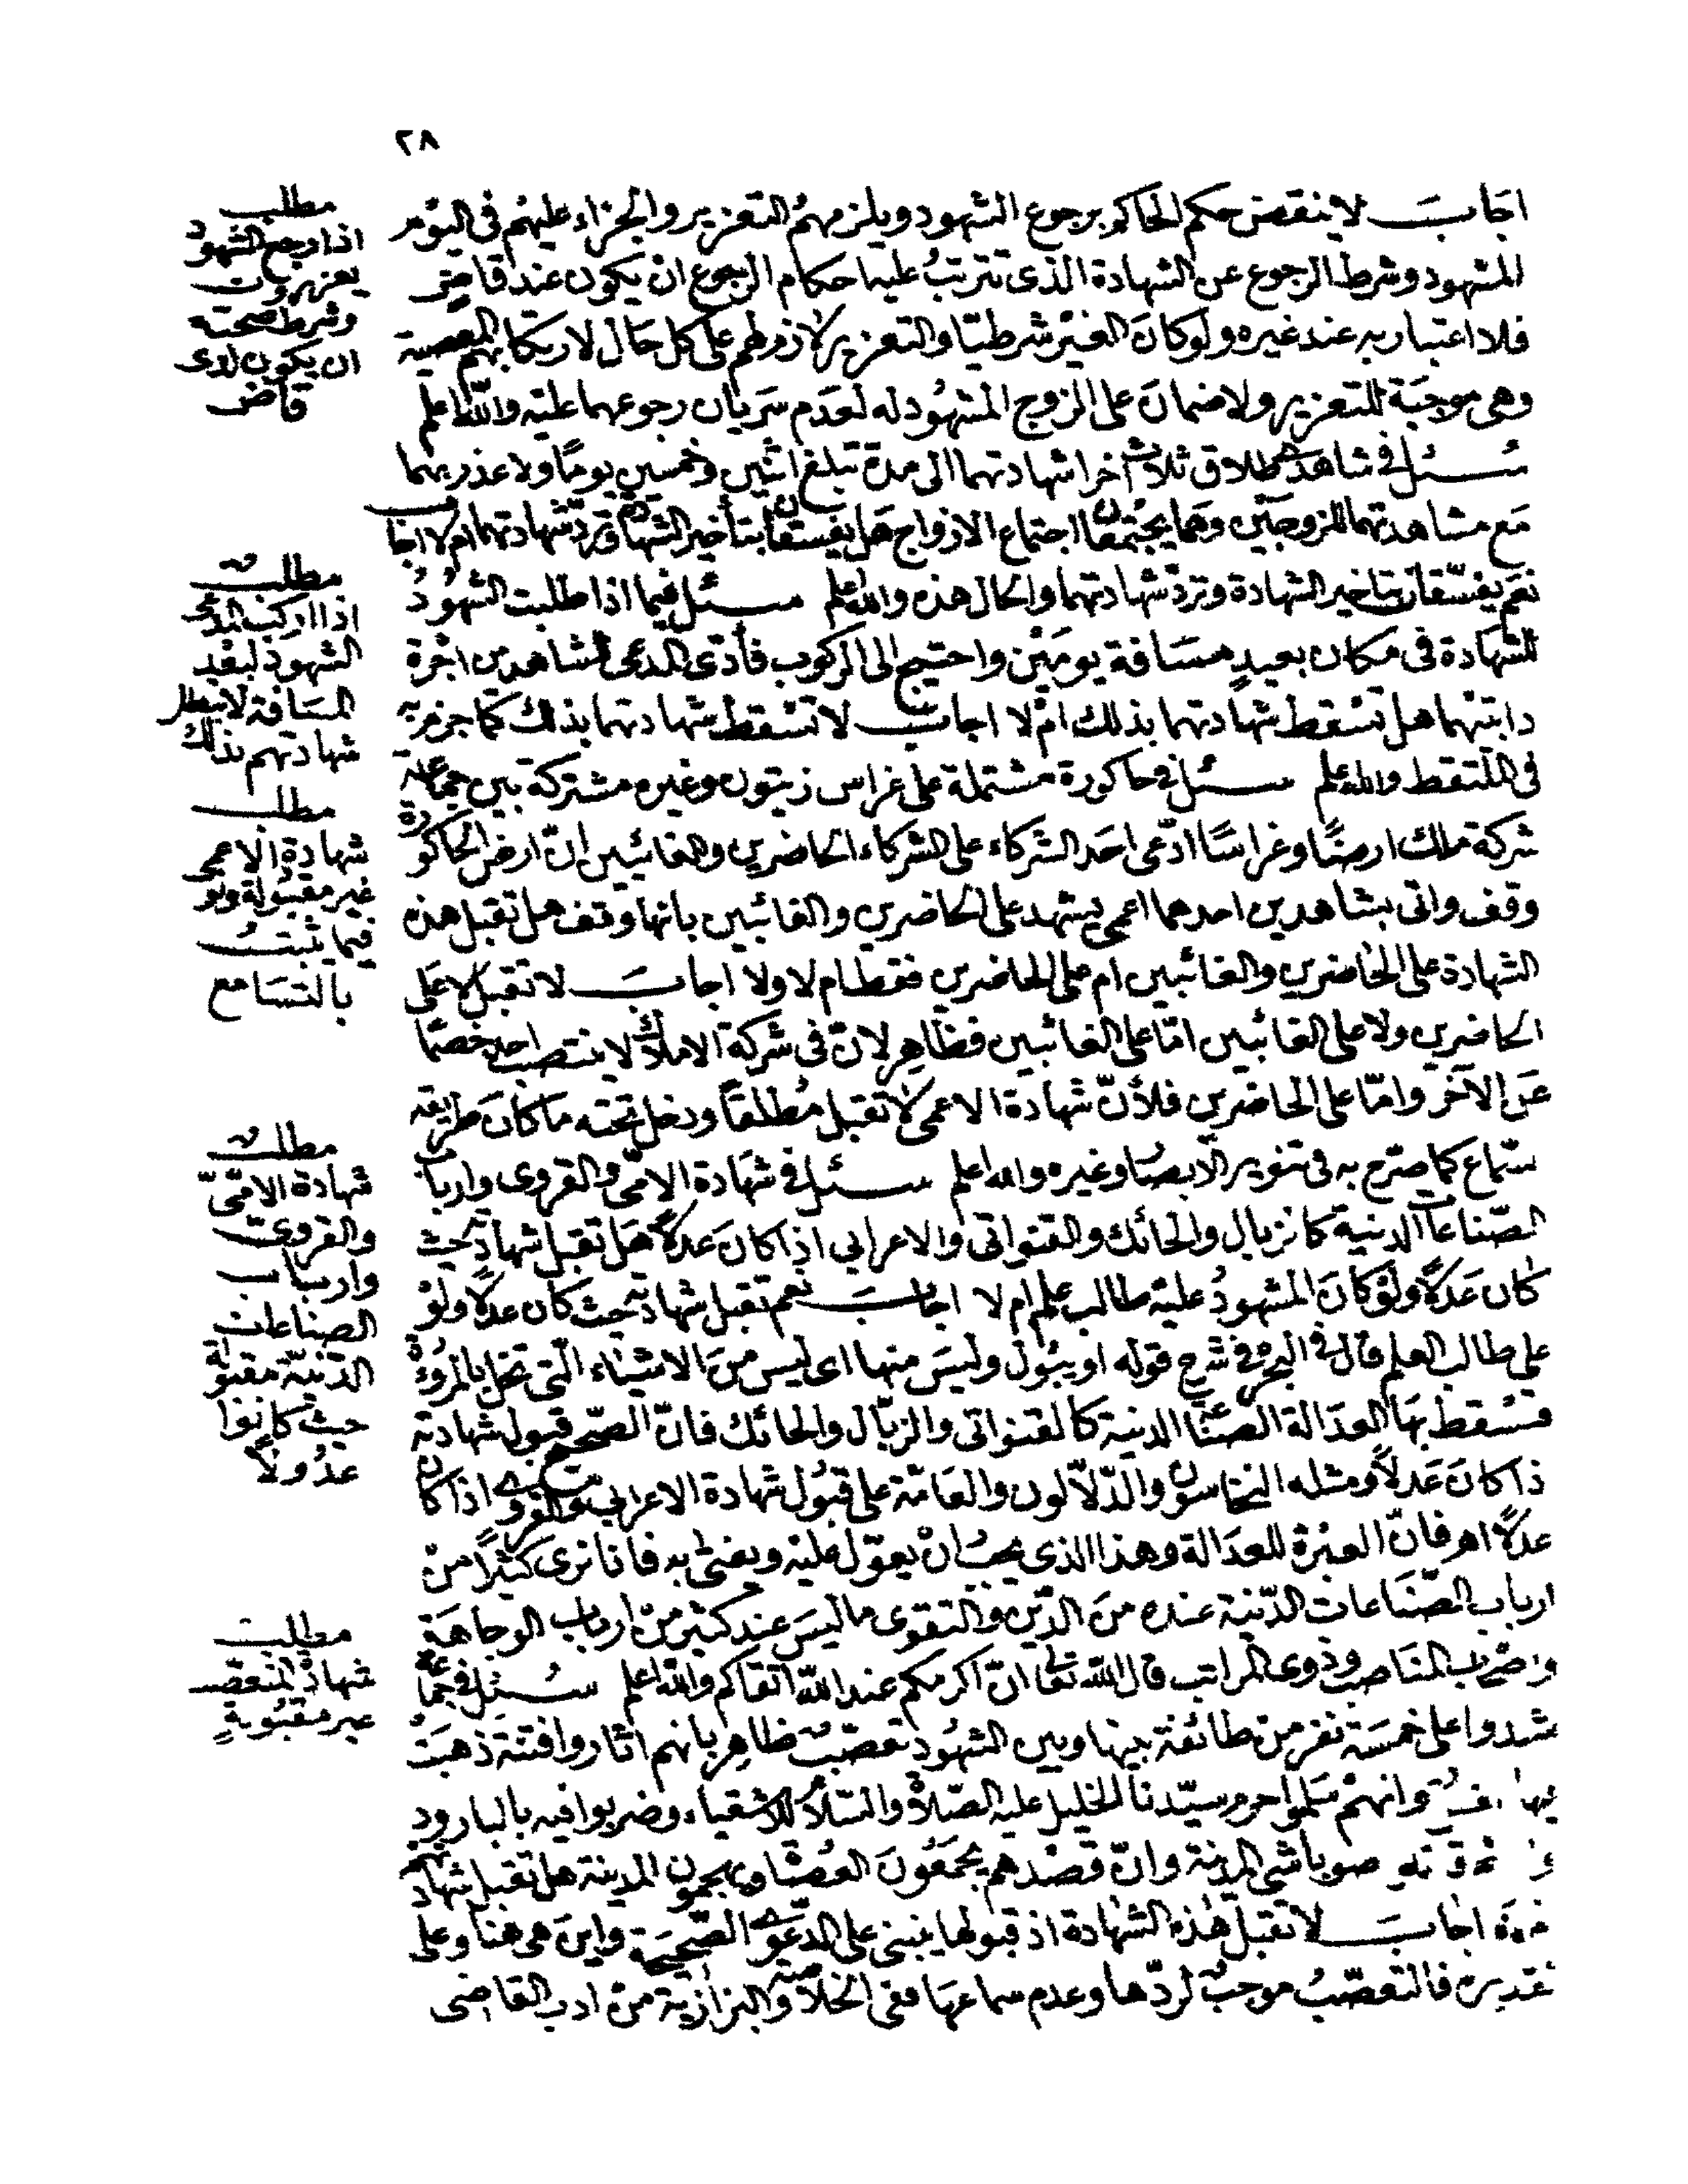 ٢٨
اجاب لا ينقض حكم الحاكم برجوع الشهود ويلزمهم التعزير والجزاء عليهم فى اليوم
المشهود وشرط الرجوع عن الشهادة الذى تترتب عليه احكام الرجوع ان يكون عند قاض
فلا اعتبار به عند غيره ولو كان الغير شرطيّا والتعزير لازم لهم على كل حال لارتكابهم المعصية
وهى موجبة للتعزير ولا ضمان على الزوج المشهود له لعدم سريان رجوعهما عليه والله اعلم
سئل فى شاهدى طلاق ثلاث اخرا شهادتهما الى مدة تبلغ اثنين وخمسين يوما ولا عذر بهما
مع مشاهدتهما للزوجين وهما يجتمعان اجتماع الازواج هل يفسقان بتأخير الشهادة وتردّ شهادتهما ام لا اجاب
نعم يفسّقان بتاخير الشهادة وتردّ شهادتهما والحال هذه والله اعلم سئل فيما اذا طلبت الشهود
للشهادة فى مكان بعيد مسافة يومين واحتيج الى الركوب فأدى المدعى للشاهدين اجرة
دابتهما هل تسقط شهادتهما بذلك ام لا اجاب لا تسقط شهادتهما بذلك كما جزم به
فى الملتقط والله اعلم سئل فى حاكورة مشتملة على غراس زيتون وغيره مشتركة بين جماعة
شركة ملك ارضًا وغراسًا ادّعى احد الشركاء على الشركاء الحاضرين والغائبين انّ ارض الحاكورة
وقف واتى بشاهدين احدهما اعمى يشهد على الحاضرين والغائبين بانها وقف هل تقبل هذه
الشهادة على الحاضرين والغائبين ام على الحاضرين فقط ام لا ولا اجاب لا تقبل لا على
الحاضرين ولا على الغائبين امّا على الغائبين فظاهر لانّ فى شركة الاملاك لا ينتصب احد خصمًا
عن الآخر وامّا على الحاضرين فلأنّ شهادة الاعمى لا تقبل مطلقًا ودخل تحته ما كان طريقه
السّماع كما صرّح به فى تنوير الابصار وغيره والله اعلم سئل فى شهادة الامّى والقروى وارباب
الصّناعات الدنية كالزبال والحائك والقنواتى والاعرابى اذا كان عدلاً هل تقبل شهادته حيث
كان عدلاً ولو كان المشهود عليه طالب علم ام لا اجاب نعم تقبل شهادته حيث كان عدلاً ولو
على طالب العلم قال فى البحر فى شرح قوله او يبول وليس منها اى ليس من الاشياء التى تخل بالمروءة
فتسقط بها العدالة الصناعة الدنية كالقنواتى والزبّال والحائك فانّ الصّحيح قبول شهادته
اذا كان عدلاً ومثله النخاسون والدّلّالون والعامّة على قبول شهادة الاعرابى والقروى اذا كان
عدلاً اهـ فانّ العبرة للعدالة وهذا الذى يجب ان يعوّل عليه ويفتى به فانا نرى كثيرًا من
ارباب الصّناعات الدّنية عنده من الدّين والتقوى ما ليس عند كثير من ارباب الوجاهة
واصحاب المناصب وذوى المراتب قال الله تعالى انّ اكرمكم عند الله اتقاكم والله اعلم سئل فى جماعة
شهدوا على خمسة نفر من طائفة بينها وبين الشهود تعصّب ظاهر بانهم اثاروا فتنة ذهبت
فيها وانهم سلموا حرم سيّدنا الخليل عليه الصّلاة والسّلام للاشقياء وضربوا فيه بالبارود
صوباشى المدينة وانّ قصدهم يجمعون العصاة ويهجمون المدينة هل تقبل شهادتهم
اجاب لا تقبل هذه الشهادة اذ قبولها ينبنى على الدّعوى الصّحيحة واين هى هنا وعلى
تقديره فالتعصّب موجب لردّها وعدم سماعها ففى الخلاصة والبزازية من ادب القاضى
مطلب
اذا رجع الشهود
يعزرون
وشرط صحته
ان يكون لدى
قاض
مطلب
اذا اركب المدعى
الشهود لبعد
المسافة لا تبطل
شهادتهم بذلك
مطلب
شهادة الاعمى
غير مقبولة ولو
فيما تثبت
بالتسامع
مطلب
شهادة الامّىّ
والقروى
وارباب
الصناعات
الدّنيّة مقبولة
حيث كانوا
عدولاً
مطلب
شهادة المتعصّب
غير مقبولة